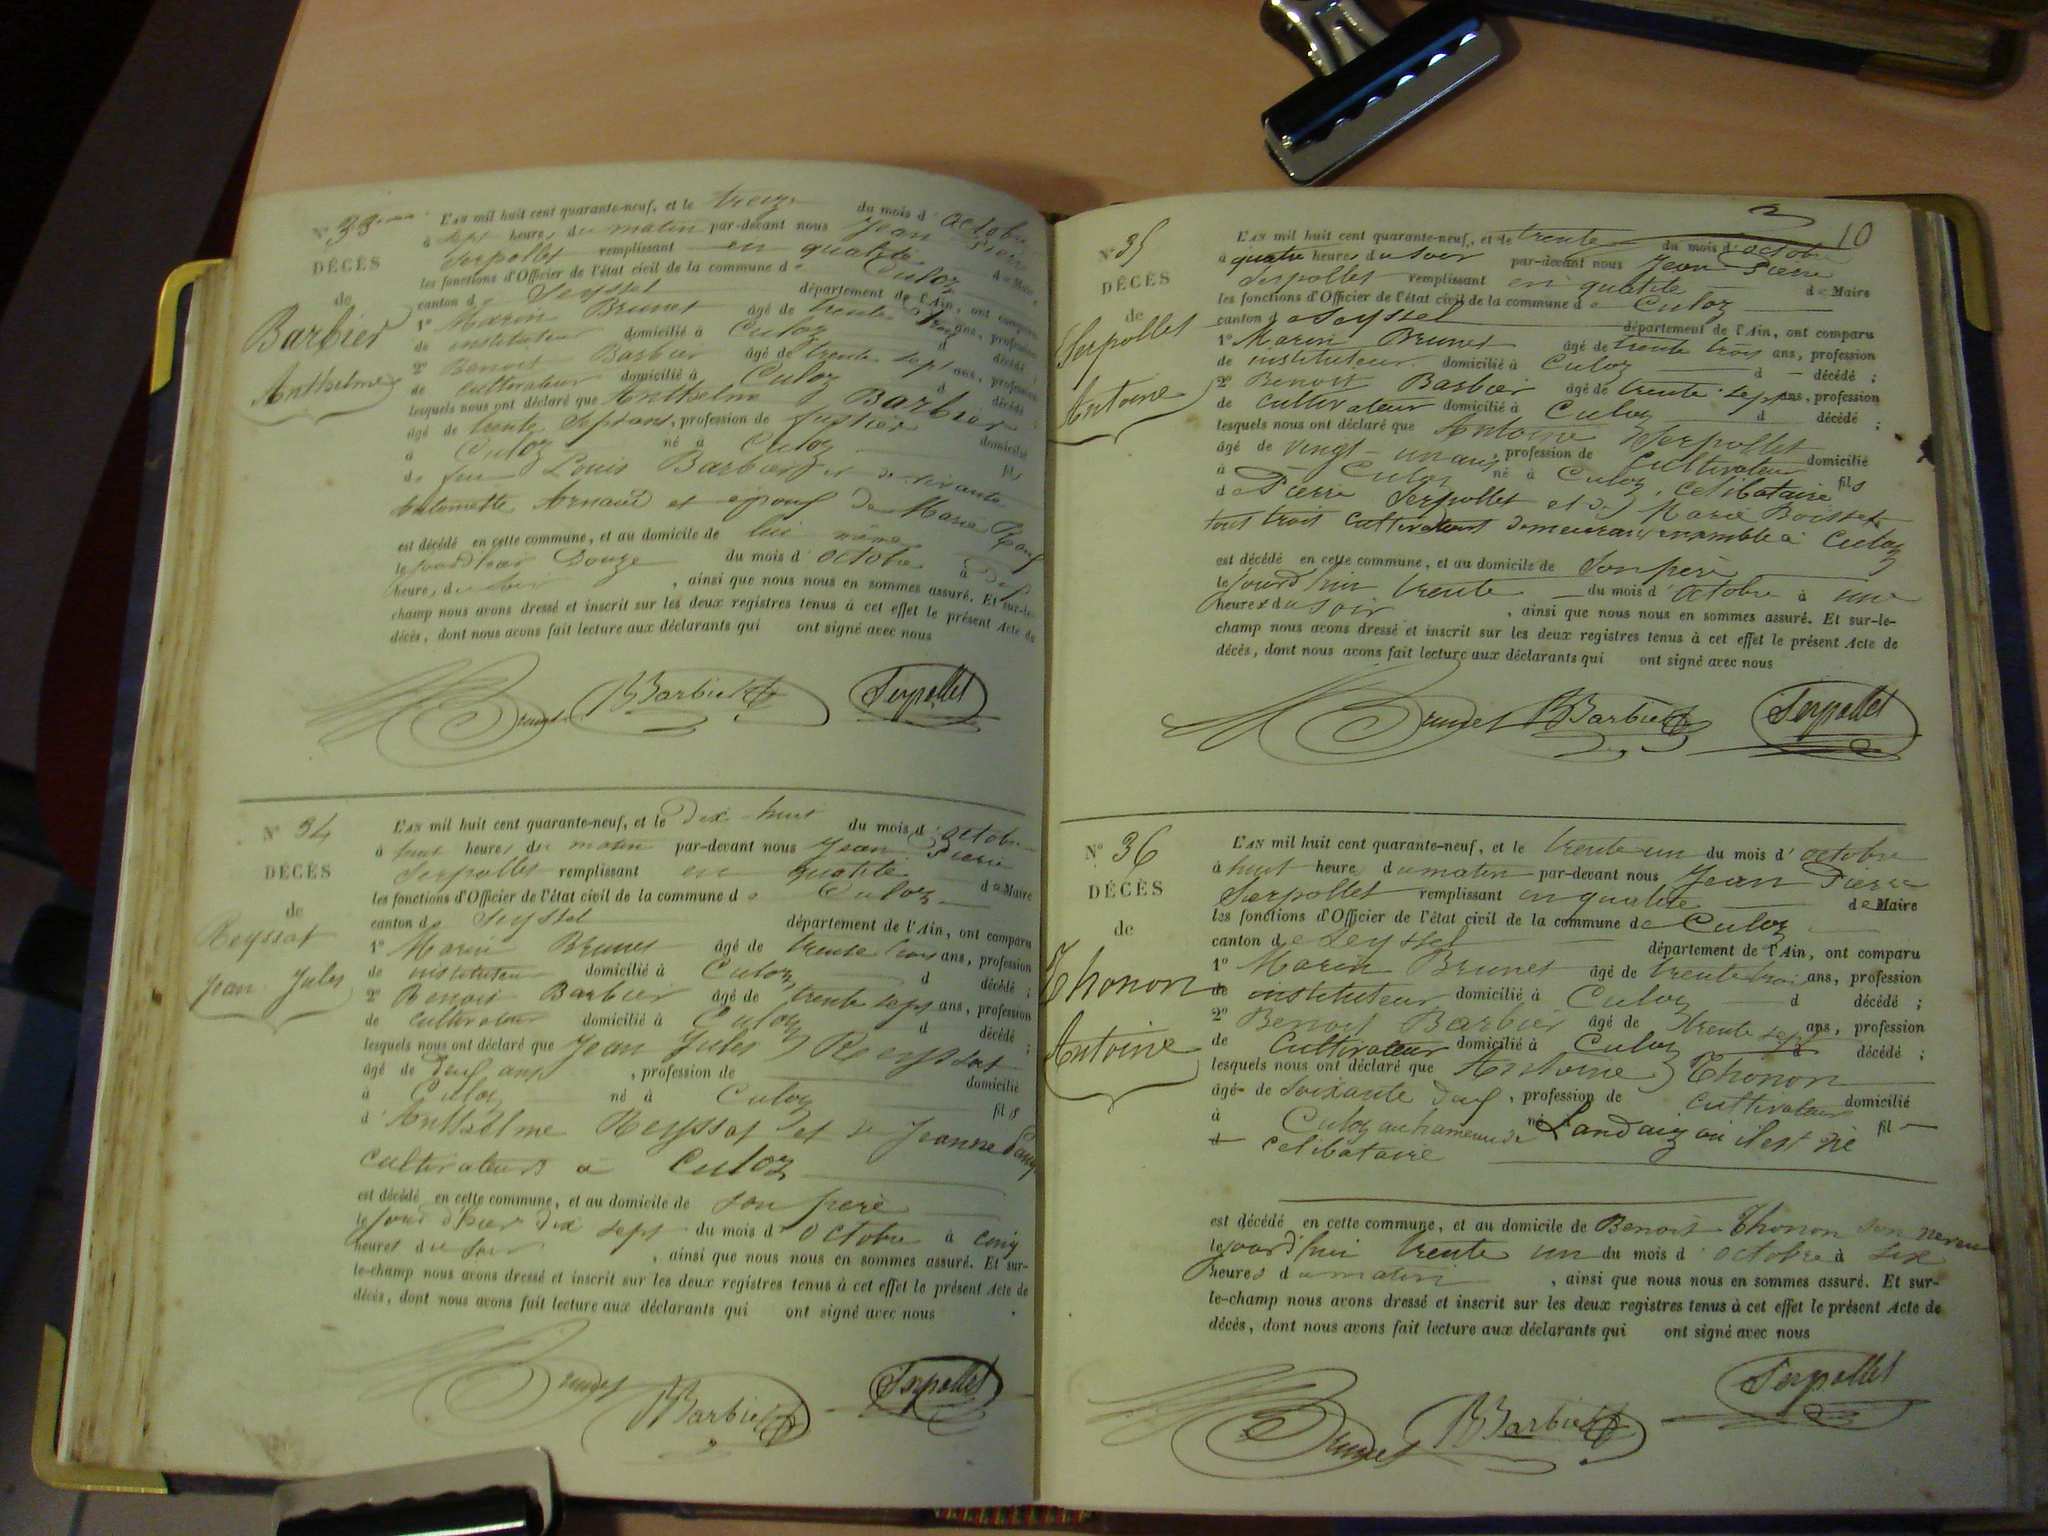 N° 33
DÉCÈS
de
Barbier
Anthelme
L'AN mil huit cent quarante-neuf, et le treize du mois d'octobre
à sept heures du matin par-devant nous Jean Pierre
Serpollet remplissant en qualité de Maire
les fonctions d'Officier de l'état civil de la commune de Culoz
canton de Seyssel département de l'Ain, ont comparu
1° Marin Brunet âgé de trente trois ans, profession
de instituteur domicilié à Culoz d décédé ;
2° Benoit Barbier âgé de trente sept ans, profession
de cultivateur domicilié à Culoz d décédé
lesquels nous ont déclaré que Anthelme Barbier
âgé de trente sept ans, profession de domicilié
à Culoz né à Culoz fils
de feu Louis Barbier et de vivante
Antoinette Arnaud et epoux de Marie
est décédé en cette commune, et au domicile de lui même
le jourd'hier Douze du mois d'octobre à
heure, du soir , ainsi que nous nous en sommes assuré. Et sur-le-
champ nous avons dressé et inscrit sur les deux registres tenus à cet effet le présent Acte de
décès, dont nous avons fait lecture aux déclarants qui ont signé avec nous
Brunet BBarbier Serpollet
N° 34
DÉCÈS
de
Reyssat
Jean Jules
L'AN mil huit cent quarante-neuf, et le dix-huit du mois d'octobre
à huit heures du matin par-devant nous Jean Pierre
Serpollet remplissant en qualité de Maire
les fonctions d'Officier de l'état civil de la commune de Culoz
canton de Seyssel département de l'Ain, ont comparu
1° Marin Brunet âgé de trente trois ans, profession
de instituteur domicilié à Culoz d décédé ;
2° Benoit Barbier âgé de trente sept ans, profession
de cultivateur domicilié à Culoz d décédé ;
lesquels nous ont déclaré que Jean Jules Reyssat
âgé de Deux ans , profession de domicilié
à Culoz né à Culoz fils
d'Anthelme Reyssat et de Jeanne
cultivateurs à Culoz
est décédé en cette commune, et au domicile de son père
le jour d'hier dix sept du mois d'octobre à cinq
heures du soir , ainsi que nous nous en sommes assuré. Et sur-
le-champ nous avons dressé et inscrit sur les deux registres tenus à cet effet le présent Acte de
décès, dont nous avons fait lecture aux déclarants qui ont signé avec nous
Brunet BBarbier Serpollet
10
N° 35
DÉCÈS
de
Serpollet
Antoine
L'AN mil huit cent quarante-neuf, et le trente du mois d'octobre
à quatre heures du soir par-devant nous Jean Pierre
Serpollet remplissant en qualité de Maire
les fonctions d'Officier de l'état civil de la commune de Culoz
canton de Seyssel département de l'Ain, ont comparu
1° Marin Brunet âgé de trente trois ans, profession
de instituteur domicilié à Culoz d décédé ;
2° Benoit Barbier âgé de trente sept ans, profession
de cultivateur domicilié à Culoz d décédé ;
lesquels nous ont déclaré que Antoine Serpollet
âgé de vingt-un ans, profession de Cultivateur domicilié
à Culoz né à Culoz, celibataire fils
de Pierre Serpollet et de Marie Boisset
tous trois cultivateurs demeurant ensemble à Culoz
est décédé en cette commune, et au domicile de son père
le jourd'hui trente du mois d'octobre à une
heures du soir , ainsi que nous nous en sommes assuré. Et sur-le-
champ nous avons dressé et inscrit sur les deux registres tenus à cet effet le présent Acte de
décès, dont nous avons fait lecture aux déclarants qui ont signé avec nous
Brunet BBarbier Serpollet
N° 36
DÉCÈS
de
Thonon
Antoine
L'AN mil huit cent quarante-neuf, et le trente un du mois d'octobre
à huit heure du matin par-devant nous Jean Pierre
Serpollet remplissant en qualité de Maire
les fonctions d'Officier de l'état civil de la commune de Culoz
canton de Seyssel département de l'Ain, ont comparu
1° Marin Brunet âgé de trente trois ans, profession
de instituteur domicilié à Culoz d décédé ;
2° Benoit Barbier âgé de trente sept ans, profession
de Cultivateur domicilié à Culoz décédé ;
lesquels nous ont déclaré que Antoine Thonon
âgé de soixante deux, profession de cultivateur domicilié
à Culoz au hameau de Landaiz où il est né fil
celibataire
est décédé en cette commune, et au domicile de Benoit Thonon son neveu
le jourd'hui trente un du mois d'octobre à six
heures du matin , ainsi que nous nous en sommes assuré. Et sur-
le-champ nous avons dressé et inscrit sur les deux registres tenus à cet effet le présent Acte de
décès, dont nous avons fait lecture aux déclarants qui ont signé avec nous
Brunet BBarbier Serpollet